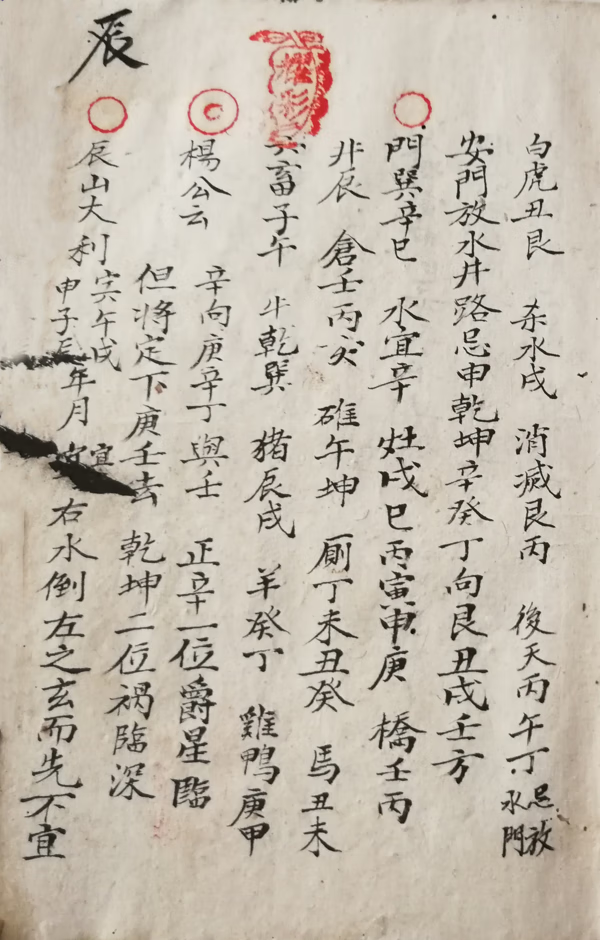 白虎丑艮 杀水戌 消滅艮丙 後天丙午丁 忌放水門
安門放水井路忌申乾坤辛癸丁向艮丑戌壬方
門巽辛巳 水宜辛 灶戌巳丙寅申庚 橋壬丙
非辰 倉壬丙亥 碓午坤 厠丁未丑癸 馬丑未
六畜子午 牛乾巽 猪辰戌 羊癸丁 雞鴨庚甲
楊公云 辛向庚辛丁與壬 正辛一位爵星臨
但将定下庚壬去 乾坤二位禍臨深
辰
辰山大利 寅午戌 申子辰年月 宜 右水倒左之玄而先不宜